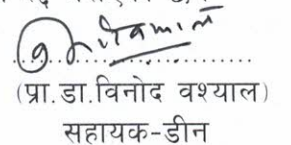 (प्रा.डा.विनोद वश्याल)
सहायक-डीन